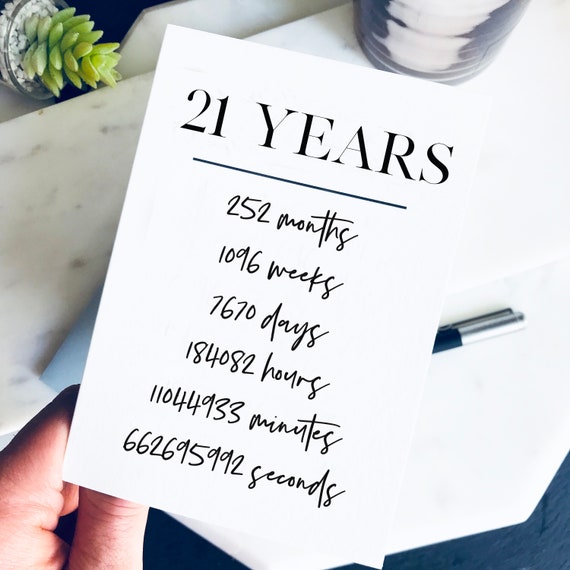 21 YEARS
252 months
1096 weeks
7670 days
184082 hours
11044933 minutes
662695992 seconds